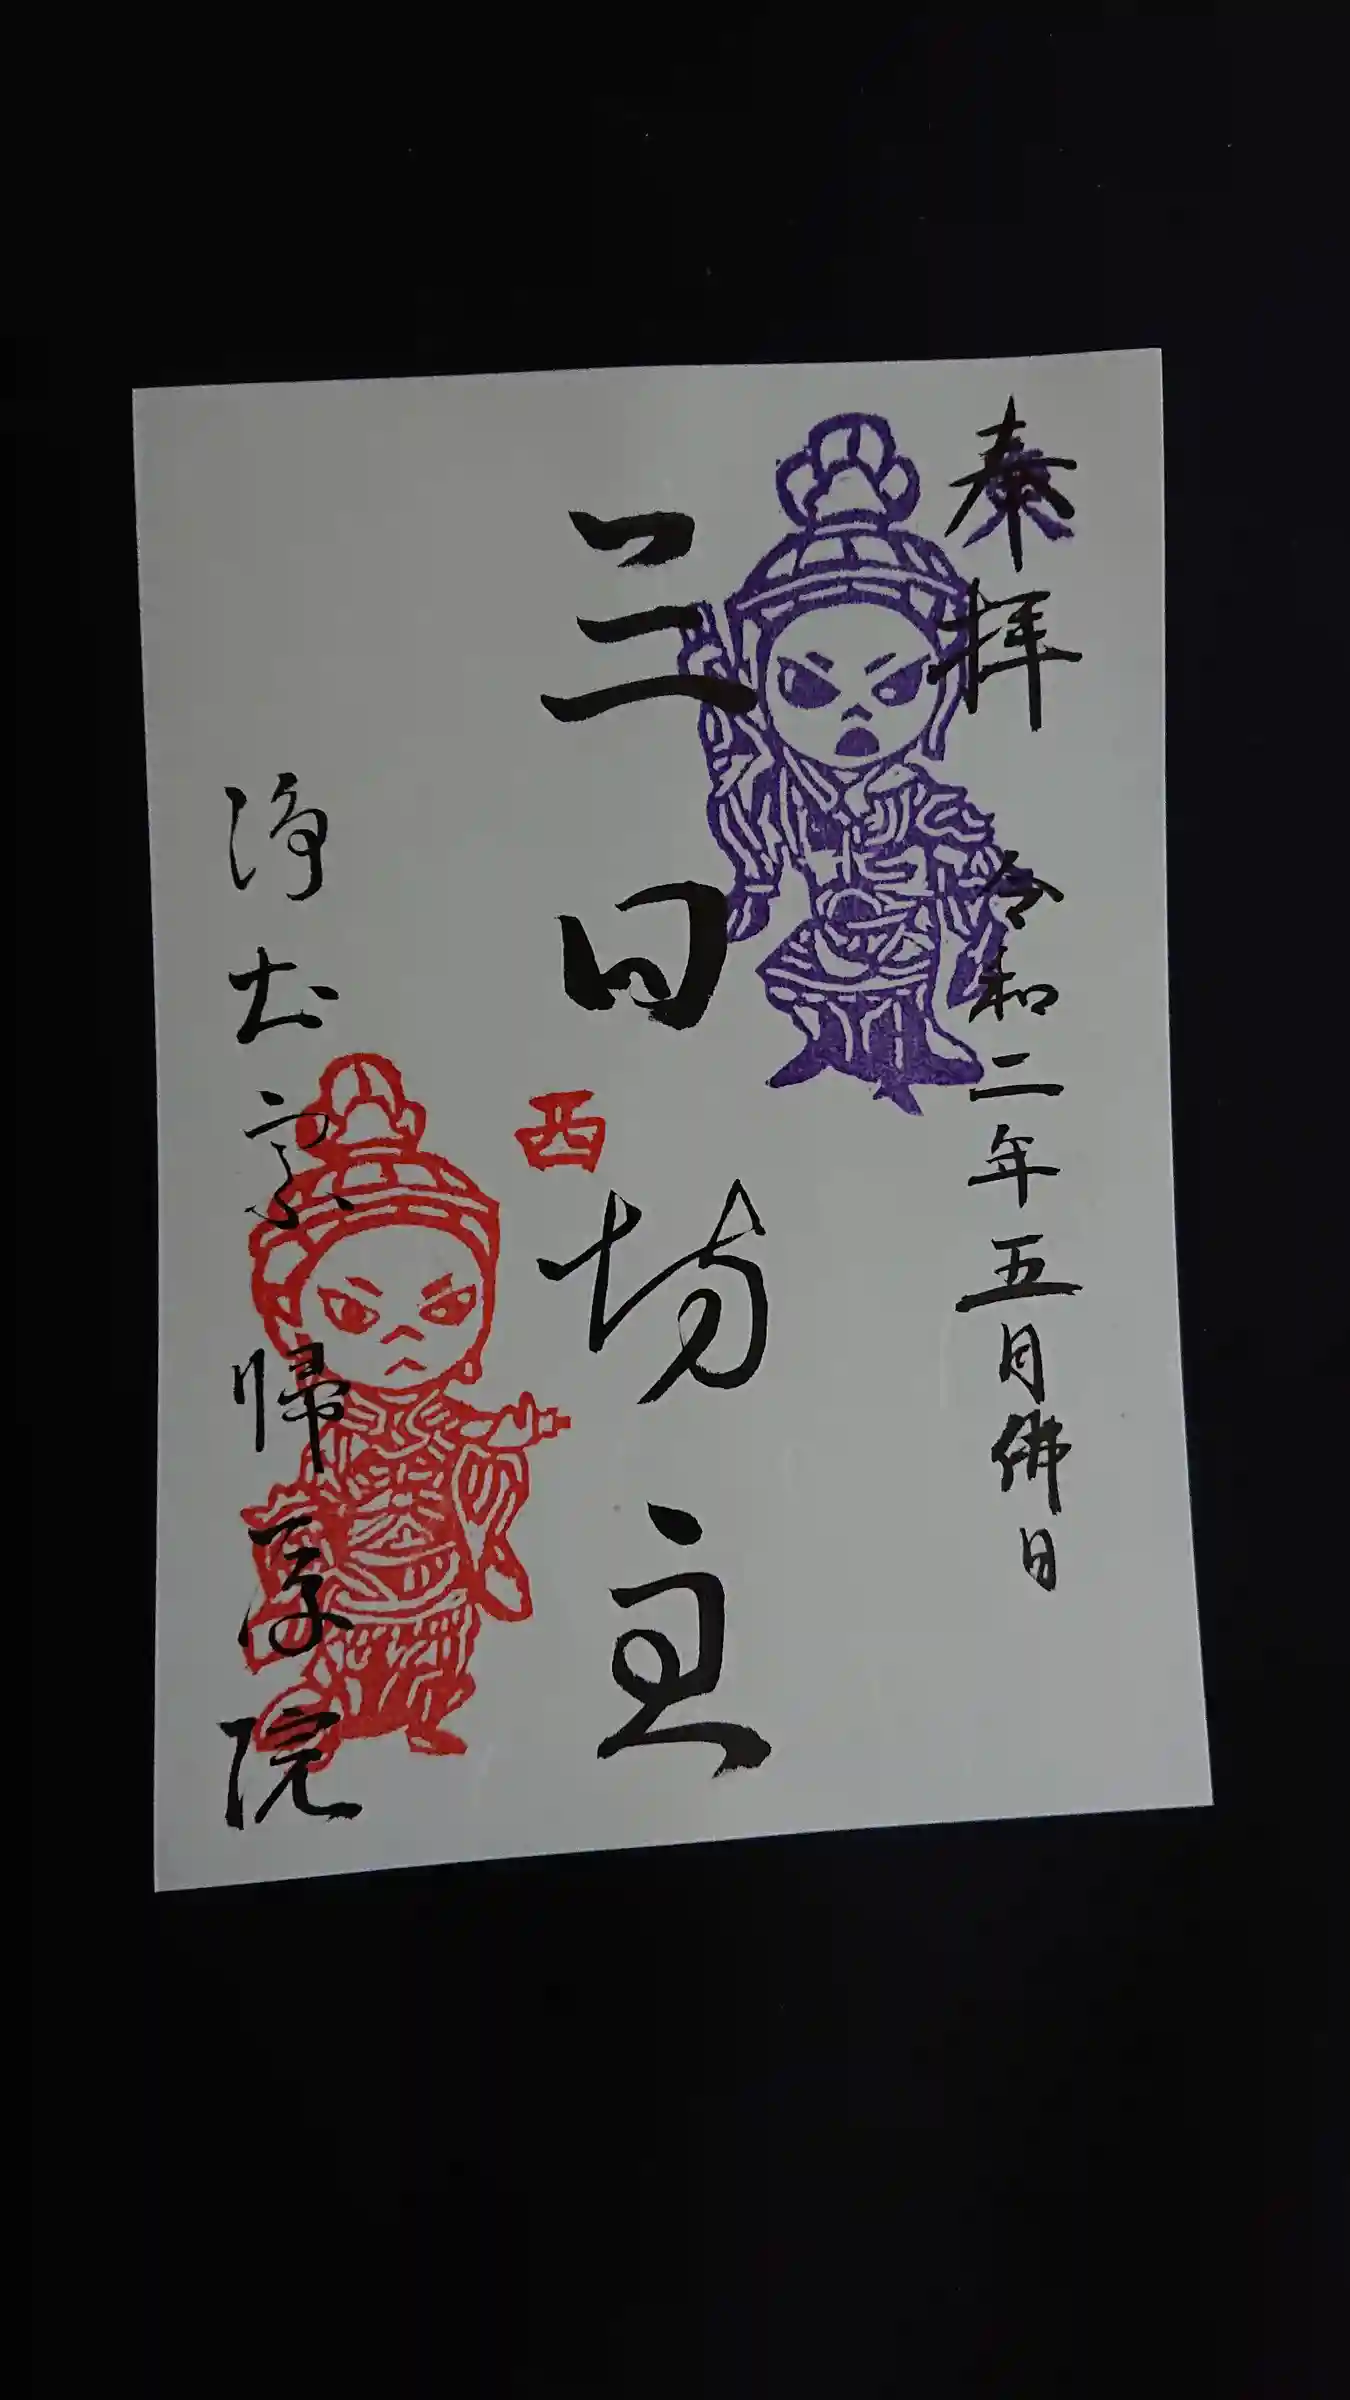 奉拝
令和二年五月佛日
三日坊主
西
浄土宗 帰厚院